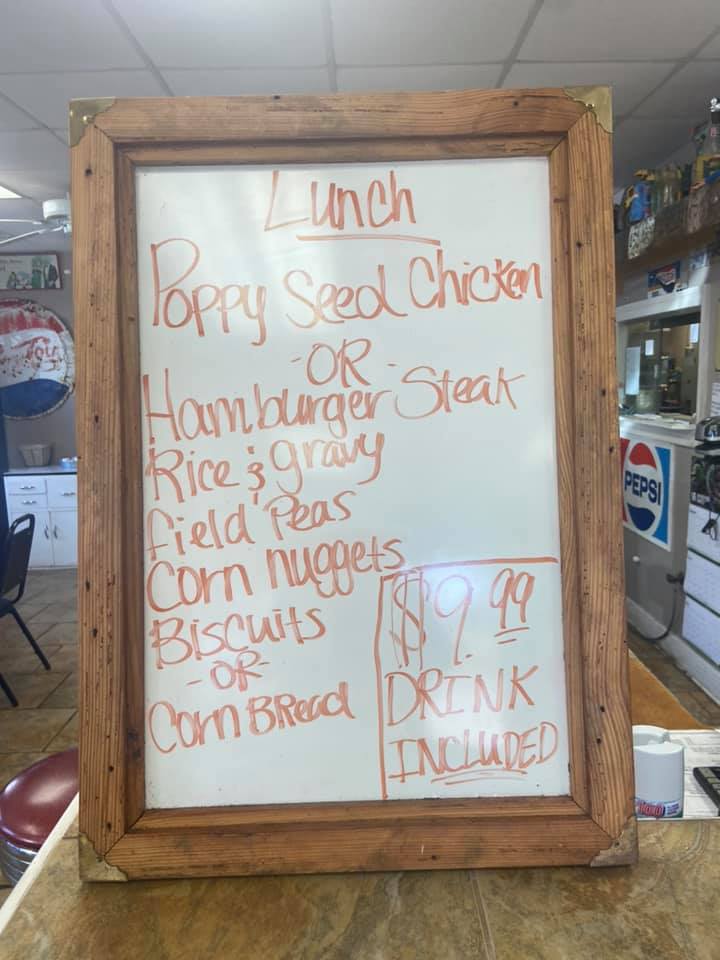 Lunch
Poppy Seed Chicken
-OR-
Hamburger Steak
Rice & gravy
field Peas
Corn nuggets
Biscuits
-OR-
Corn BRead
$9.99
DRINK
INCLUDED
PEPSI